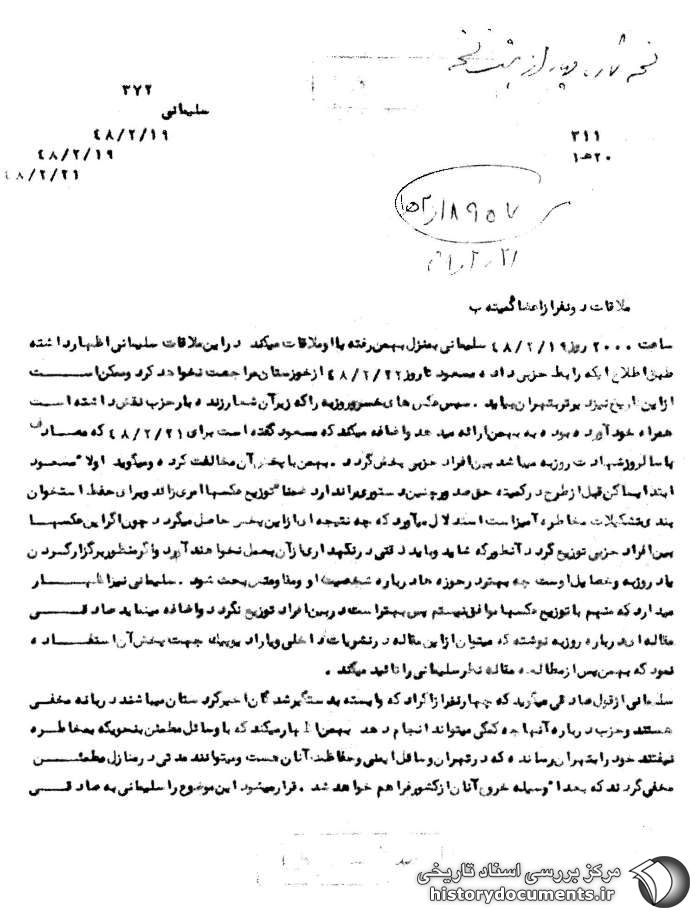 ۳۷۲
سلیمانی
۴۸/۲/۱۹
۴۸/۲/۱۹
۴۸/۲/۲۱
۳۱۱
۲۰ ه‍ ۱
ملاقات دو نفر از اعضا کمیته ب
ساعت ۲۰۰۰ روز ۴۸/۲/۱۹ سلیمانی بمنزل بهمن رفته با او ملاقات میکند در این ملاقات سلیمانی اظهار داشته
طبق اطلاع ایکه رابط حزبی داده مسعود تا روز ۴۸/۲/۲۲ از خوزستان مراجعت نخواهد کرد و ممکن است
از این تاریخ نیز دیرتر بتهران بیاید . سپس عکس های خسرو روزبه را که زیر آن شعار زنده باد حزب نقش داشته است
همراه خود آورده بوده به بهمن ارائه میدهد و اضافه میکند که مسعود گفته است برای ۴۸/۲/۲۱ که مصادف
با سالروز شهادت روزبه میباشد بین افراد حزبی پخش گردد . بهمن با پخش آن مخالفت کرده و میگوید اولا" مسعود
ابتدا بساکن قبل از طرح در کمیته حق صدور چنین دستوری را ندارد ضمنا" توزیع عکسها امری زائد و برای حفظ استخوان
بندی تشکیلات مخاطره آمیز است استدلال میآورد که چه نتیجه ای از این پخش حاصل میگردد چون اگر این عکسها
بین افراد حزبی توزیع گردد آنطور که شاید و باید دقتی در نگهداری از آن بعمل نخواهند آورد و اگر منظور برگزار کردن
یاد روزبه و خصایل اوست چه بهتر در حوزه ها درباره شخصیت او و مقاومتش بحث شود . سلیمانی نیز اظهار
میدارد که منهم با توزیع عکسها موافق نیستم پس بهتر است در بین افراد توزیع نگردد و اضافه مینماید صادقی
مقاله ای درباره روزبه نوشته که میتوان از این مقاله در نشریات داخلی و یا رادیو پیک جهت پخش آن استفاده
نمود که بهمن پس از مطالعه مقاله نظر سلیمانی را تائید میکند .
سلیمانی از قول صادقی میآورد که چهار نفر از اکراد که وابسته بدستگیر شدگان اخیر کردستان میباشند در بانه مخفی
هستند و حزب درباره آنها چه کمکی میتواند انجام دهد بهمن اظهار میکند که با وسائل مطمئن بنحویکه بمخاطره
نیفتند خود را بتهران رسانده که در تهران وسائل ایمنی و حفاظت آنان هست و میتوانند مدتی در منازل مطمئن
مخفی گردند که بعدا" وسیله خروج آنان از کشور فراهم خواهد شد . قرار میشود این موضوع را سلیمانی به صادقی
مرکز بررسی اسناد تاریخی
historydocuments.ir